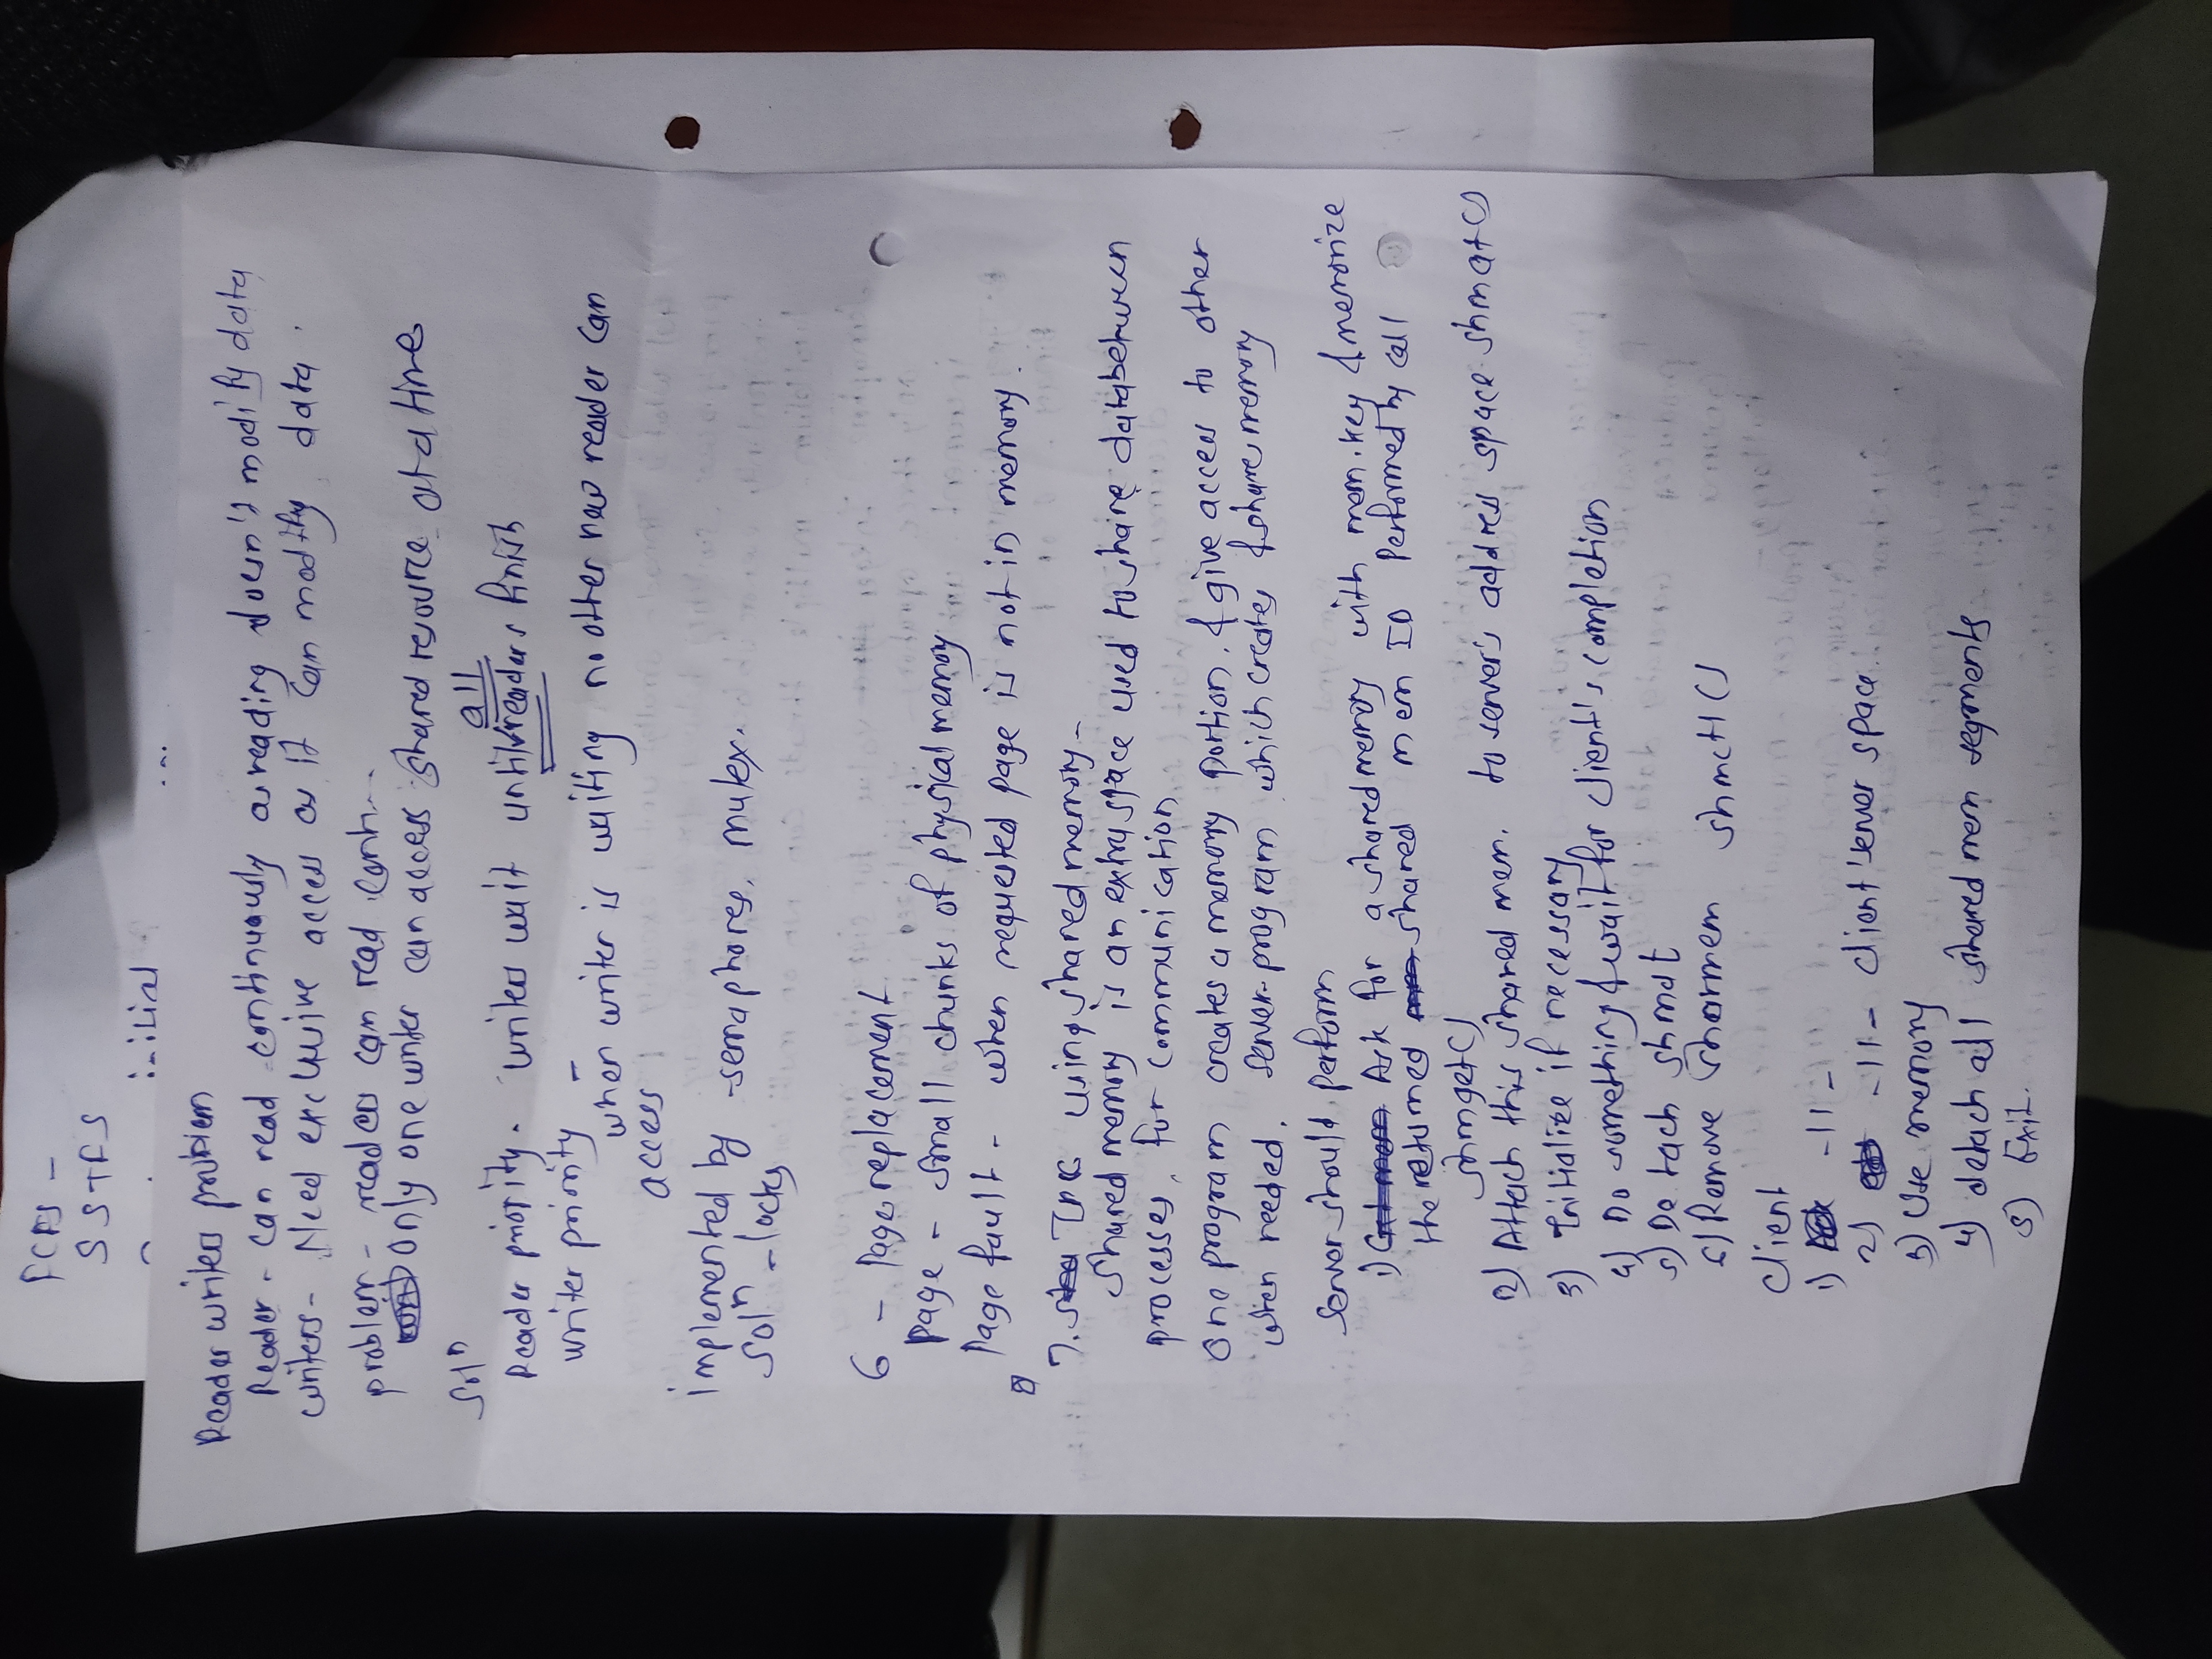 FCFS -
SSTFS
initial
Reader writers problem
Reader - can read continuously as reading doesn't modify data
writers - Need exclusive access as it can modify data.
problem - readers can read cont...
only one writer can access shared resource at a time
Solⁿ
all
Reader priority - writers wait until readers finish
writer priority -
when writer is waiting no other new reader can
access
implemented by - semaphores, mutex.
Solⁿ - locks
6 - Page replacement
page - small chunks of physical memory
Page fault - when requested page is not in memory.
7. IPC using shared memory -
Shared memory is an extra space used to share data between
processes, for communication
One program creates a memory portion, & give access to other
when needed. Server - program which creates & share memory
Server should perform
1) Ask for a shared memory with mem. key & memorize
the returned shared mem ID Performed by call
shmget()
2) Attach this shared mem. to server's address space shmat()
3) Initialize if necessary
4) Do something & wait for client's completion
5) Detach shmdt
6) Remove sharmem shmctl()
Client
1) -11-
2) -11- client server space
3) Use memory
4) detach all shared mem segments
5) Exit.